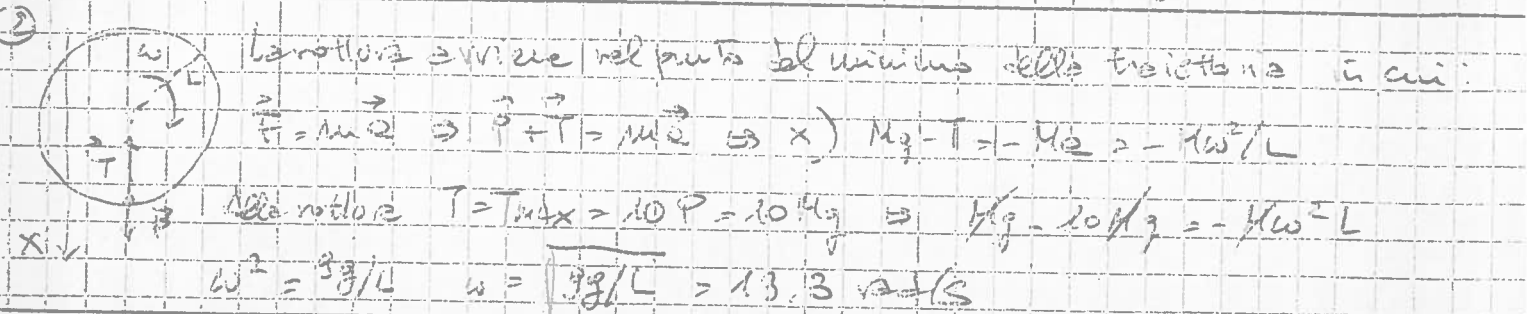 ②
ω L La rottura avviene nel punto di minimo della traiettoria in cui:
F⃗ = m a⃗ ⇒ P⃗ + T⃗ = m a⃗ ⇒ x) Mg - T = - Ma = - Mω²/L
T⃗
Alla rottura T = Tmax = 10 P = 10 Mg ⇒ Mg - 10 Mg = - Mω² L
P⃗
X
ω² = 9g/L ω = √9g/L = 13.3 rad/s